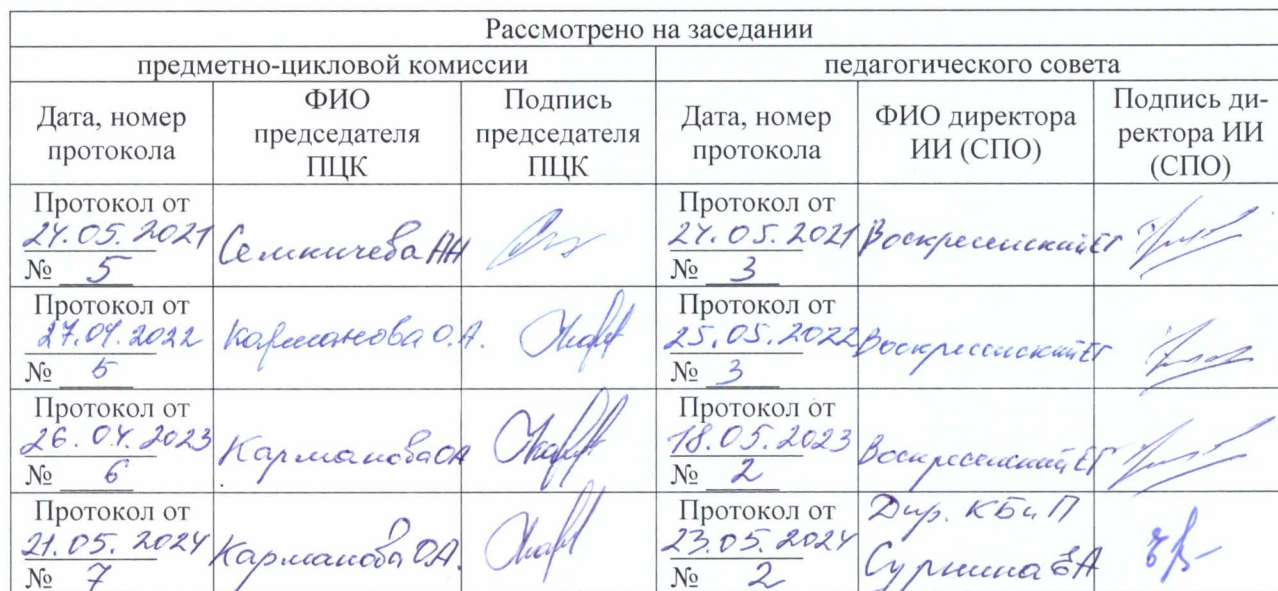 Рассмотрено на заседании
предметно-цикловой комиссии
педагогического совета
Дата, номер
протокола
ФИО
председателя
ПЦК
Подпись
председателя
ПЦК
Дата, номер
протокола
ФИО директора
ИИ (СПО)
Подпись ди-
ректора ИИ
(СПО)
Протокол от
24.05.2021
№ 5
Семкичева АН
Протокол от
24.05.2021
№ 3
Воскресенский ЕГ
Протокол от
27.04.2022
№ 5
Карманова О.А.
Протокол от
25.05.2022
№ 3
Воскресенский ЕГ
Протокол от
26.04.2023
№ 6
Карманова ОА
Протокол от
18.05.2023
№ 2
Воскресенский ЕГ
Протокол от
21.05.2024
№ 7
Карманова О.А.
Протокол от
23.05.2024
№ 2
Дир. КБиП
Сурнина ЕА